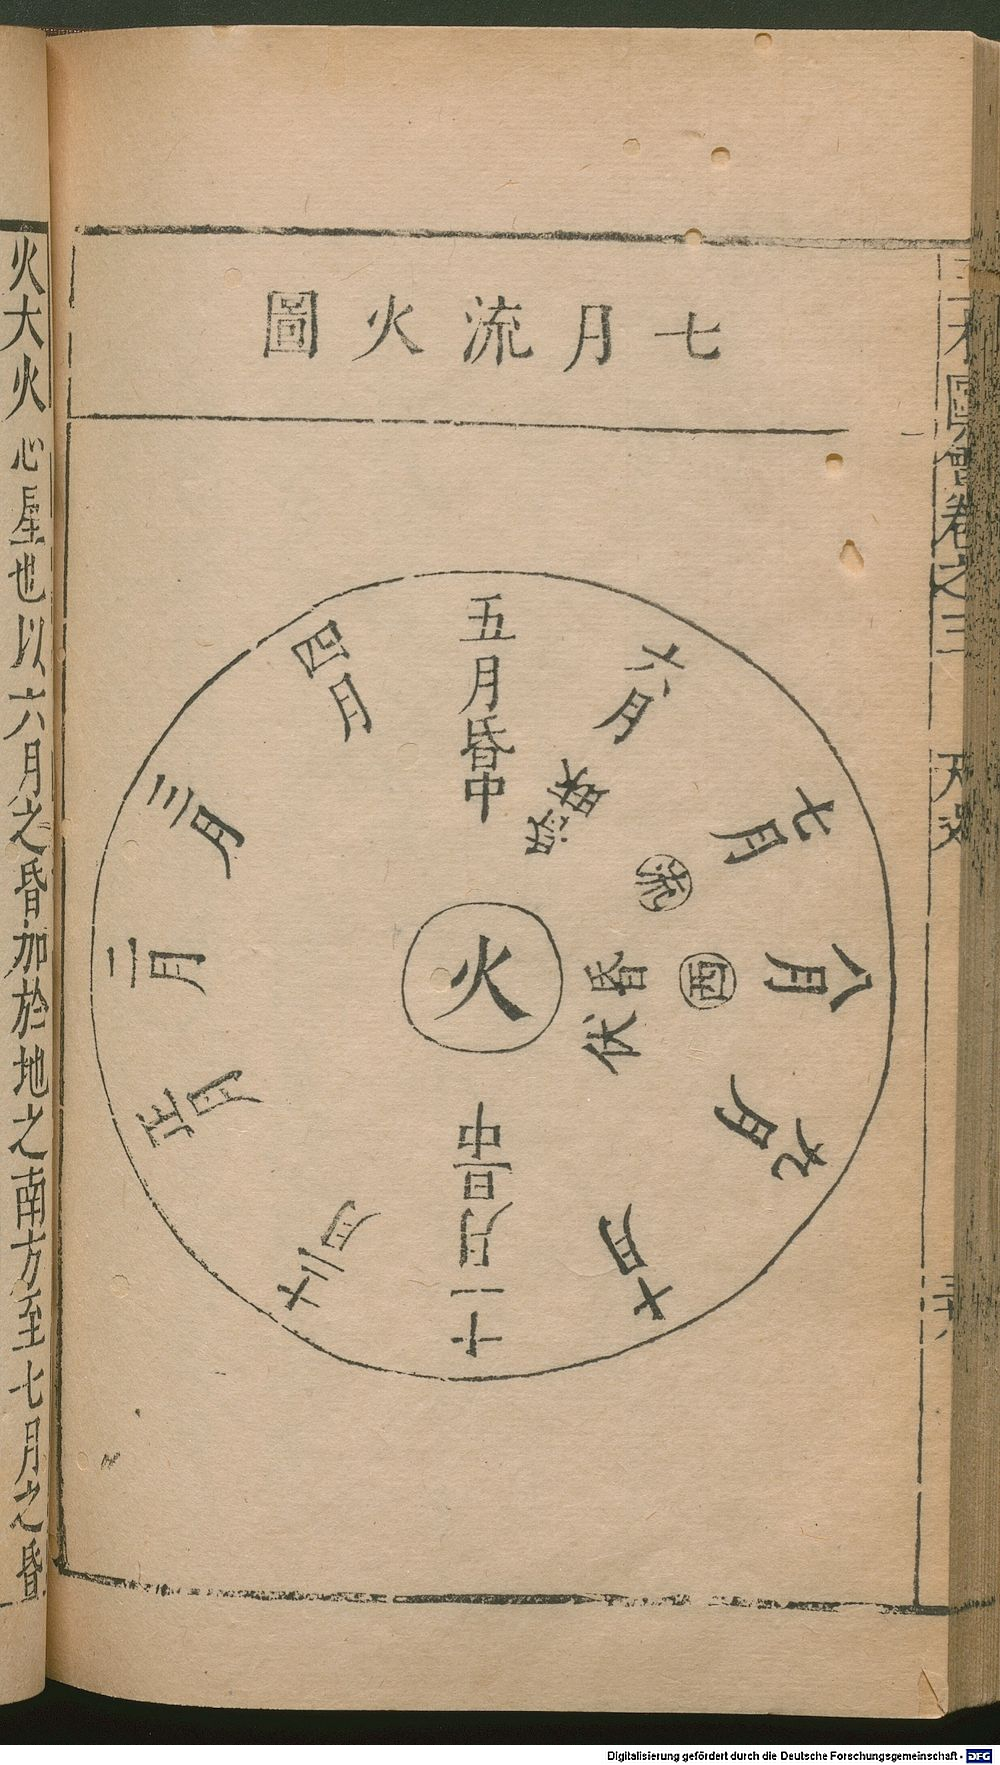 七月流火圖
五月昏中
六月
七月
八月
九月
十月
十一月旦中
十二月
正月
二月
三月
四月
流
西
昏伏
火
圖會卷之三
天文
火大火心星也以六月之昏加於地之南方至七月之昏
Digitalisierung gefördert durch die Deutsche Forschungsgemeinschaft - DFG